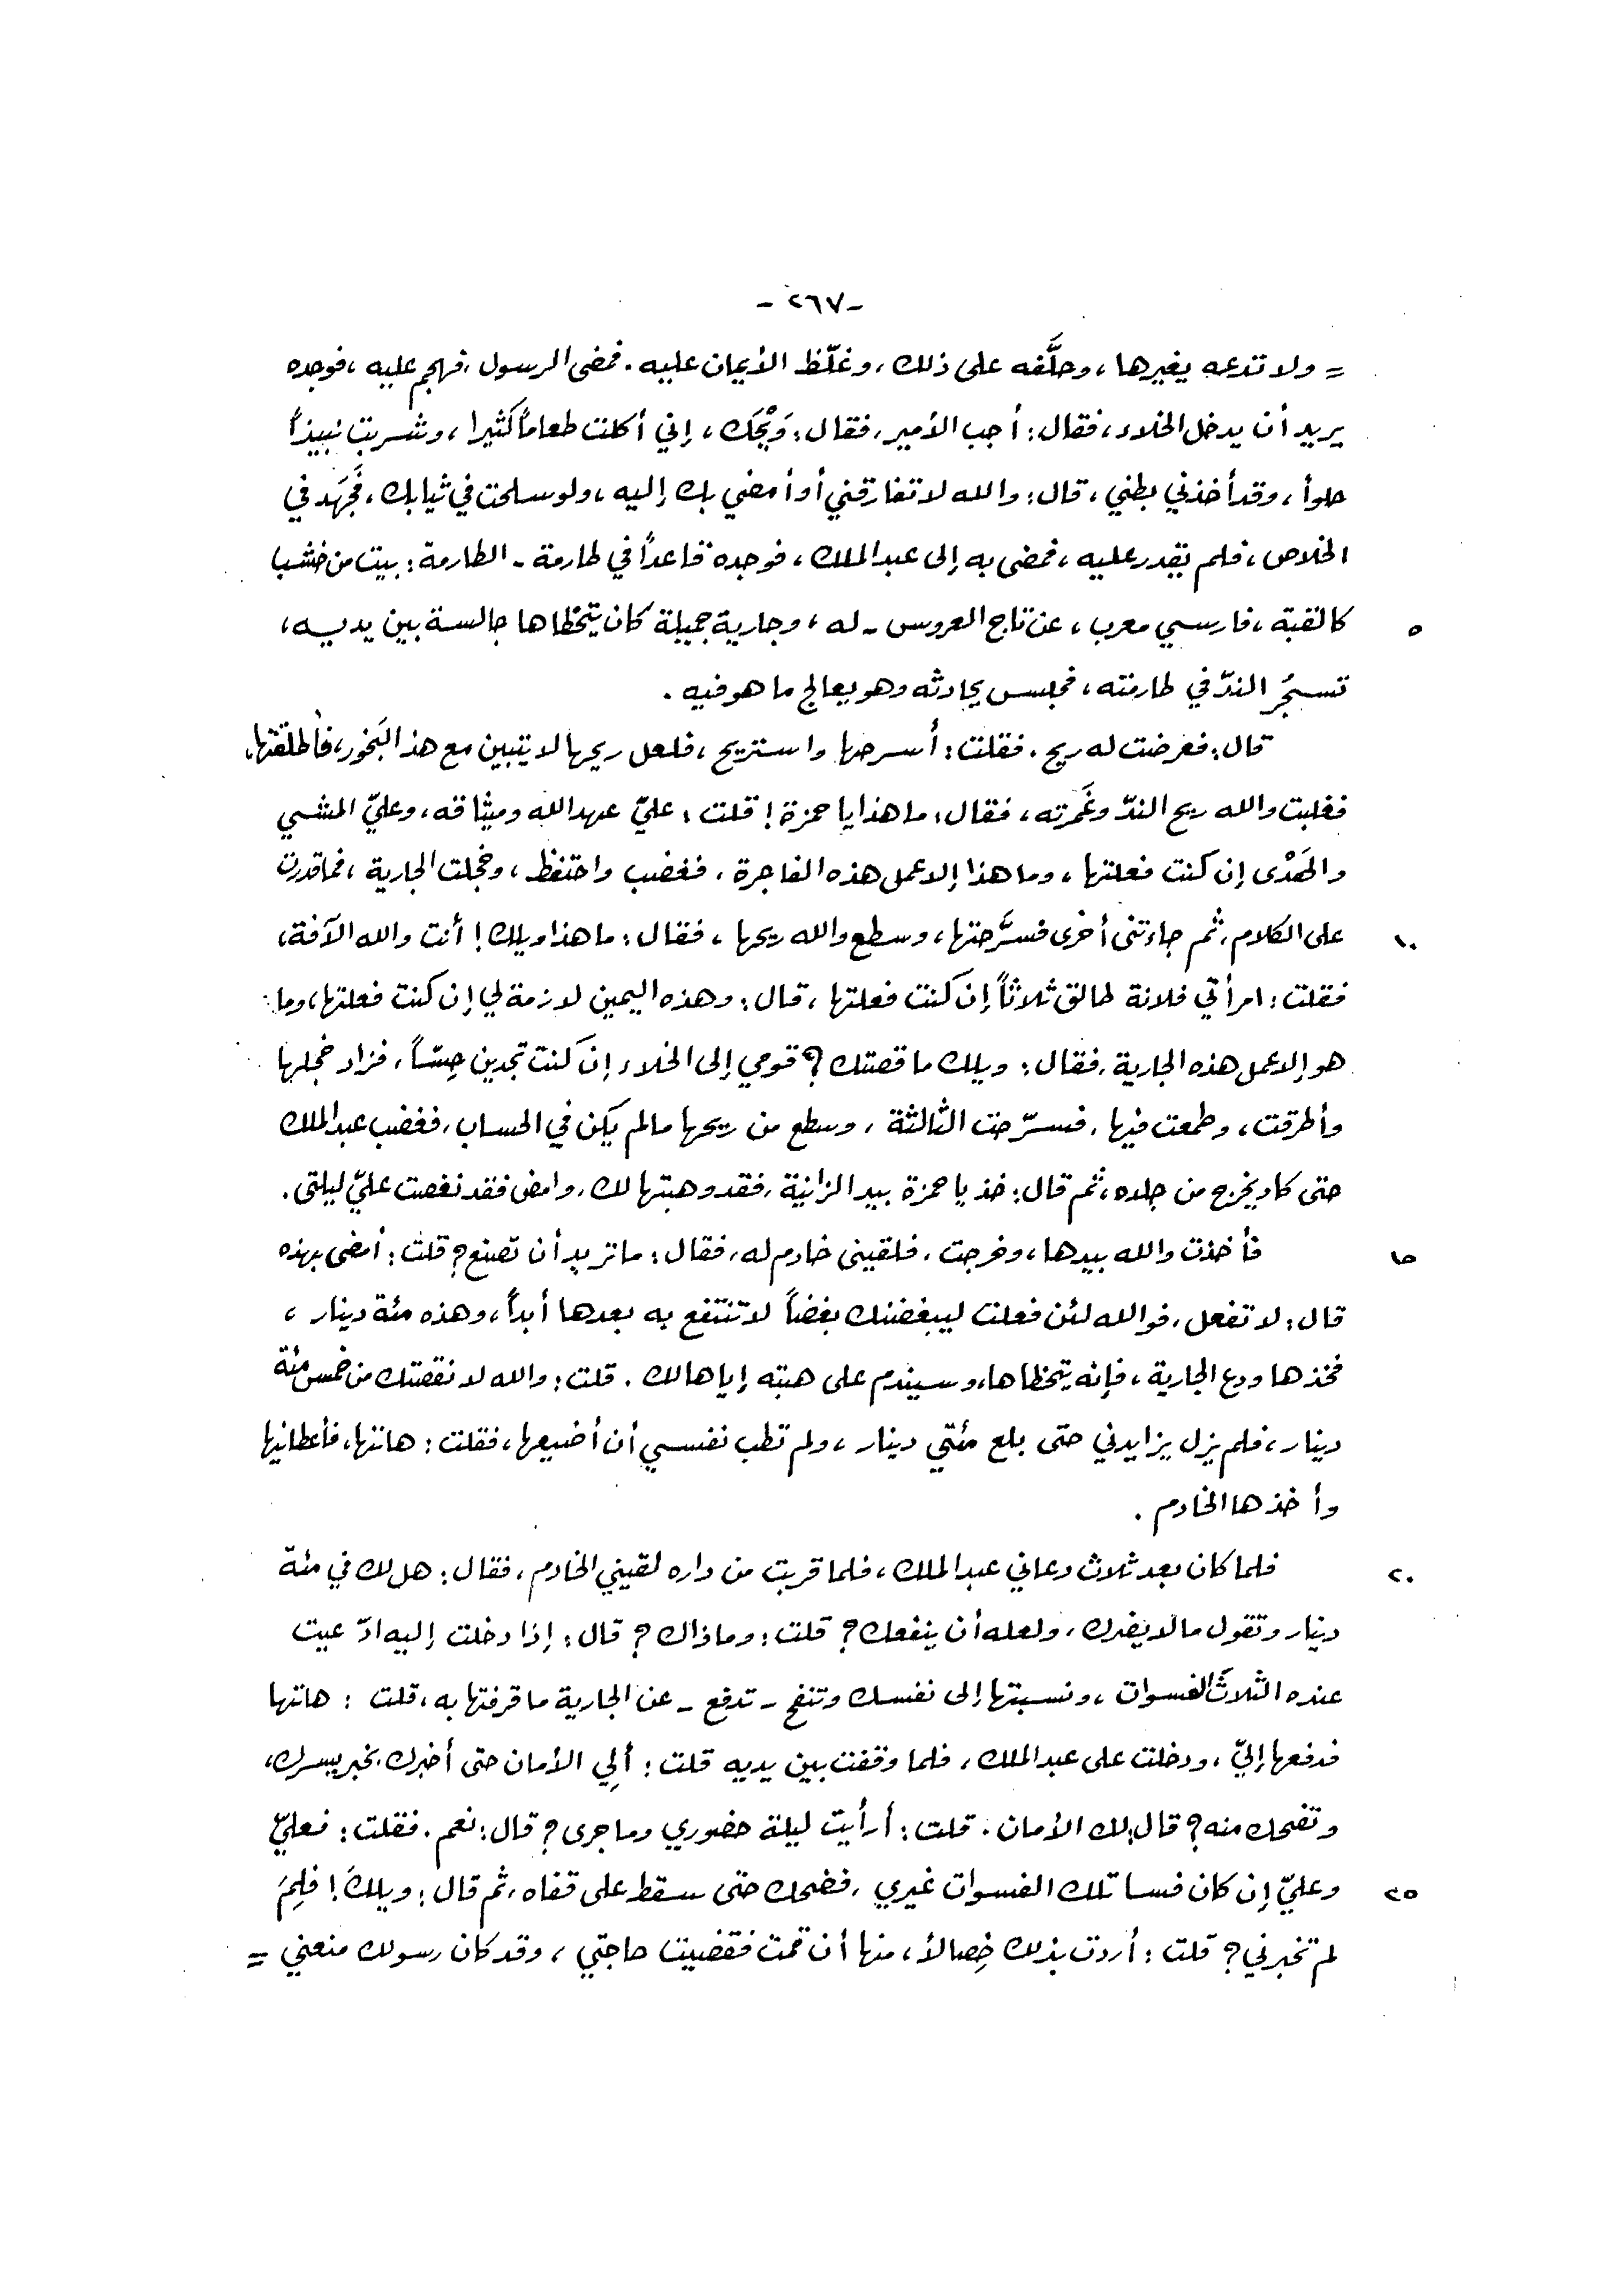 - ٢٦٧ -
= ولا تدعه يغيرها، وحلَّفه على ذلك، وغلّظ الأيمان عليه. فمضى الرسول، فهجم عليه، فوجده
يريد أن يدخل الخلاء، فقال: أجب الأمير، فقال: وَيْحَك، إني أكلت طعاماً كثيرا، وشربت نبيذاً
حلواً، وقد أخذني بطني، قال: والله لا تفارقني أو أمضي بك إليه، ولو سلحت في ثيابك، فجَهَد في
الخلاص، فلم يقدر عليه، فمضى به إلى عبد الملك، فوجده قاعداً في طارمة - الطارمة: بيت من خشب
٥ كالقبة، فارسي معرب، عن تاج العروس - له، وجارية جميلة كان يتحظاها جالسة بين يديه،
تسجُر الندّ في طارمته، فجلس يحادثه وهو يعالج ما هو فيه.
قال: فعرضت له ريح. فقلت: أسرحها وأستريح، فلعل ريحها لا يتبين مع هذا البَخور، فأطلقتها،
فغلبت والله ريح الندّ وغَمَرته، فقال: ما هذا يا حمزة! قلت: عليّ عهد الله وميثاقه، وعليّ المشي
والهَدْى إن كنت فعلتها، وما هذا إلا عمل هذه الفاجرة، فغضب واحتفظ، وخجلت الجارية، فما قدرت
١٠ على الكلام، ثم جاءتني أخرى فسرَّحتها، وسطع والله ريحها، فقال: ما هذا ويلك! أنت والله الآفة،
فقلت: امرأتي فلانة طالق ثلاثاً إن كنت فعلتها، قال: وهذه اليمين لازمة لي إن كنت فعلتها، وما
هو إلا عمل هذه الجارية، فقال: ويلك ما قصتك؟ قومي إلى الخلاء إن كنت تجدين حِسّاً، فزاد خجلها
وأطرقت، وطمعت فيها، فسرّحت الثالثة، وسطع من ريحها ما لم يكن في الحساب، فغضب عبد الملك
حتى كاد يخرج من جلده، ثم قال: خذ يا حمزة بيد الزانية، فقد وهبتها لك، وامض فقد نغصت عليّ ليلتي.
١٥ فأخذت والله بيدها، وخرجت، فلقيني خادم له، فقال: ما تريد أن تصنع؟ قلت: أمضى بهذه
قال: لا تفعل، فوالله لئن فعلت ليبغضنك بغضاً لا تنتفع به بعدها أبداً، وهذه مئة دينار،
فخذها ودع الجارية، فإنه يتحظاها، وسيندم على هبته إياها لك. قلت: والله لا نقصتك من خمس مئة
دينار، فلم يزل يزايدني حتى بلغ مئتي دينار، ولم تطب نفسي أن أضيعها، فقلت: هاتها، فأعطانيها
وأخذها الخادم.
٢٠ فلما كان بعد ثلاث دعاني عبد الملك، فلما قربت من داره لقيني الخادم، فقال: هل لك في مئة
دينار وتقول ما لا يضرك، ولعله أن ينفعك؟ قلت: وما ذاك؟ قال: إذا دخلت إليه ادّعيت
عنده الثلاثَ الفسوات، ونسبتها إلى نفسك وتنفح - تدفع - عن الجارية ما قرفتها به، قلت: هاتها
فدفعها إليّ، ودخلت على عبد الملك، فلما وقفت بين يديه قلت: ألِي الأمان حتى أخبرك بخبر يسرك،
وتضحك منه؟ قال: لك الأمان. قلت: أرأيت ليلة حضوري وما جرى؟ قال: نعم. فقلت: فعليّ
٢٥ وعليّ إن كان فسا تلك الفسوات غيري، فضحك حتى سقط على قفاه، ثم قال: ويلكَ! فلِمَ
لم تخبرني؟ قلت: أردت بذلك خِصالاً، منها أن قمت فقضيت حاجتي، وقد كان رسولك منعني =